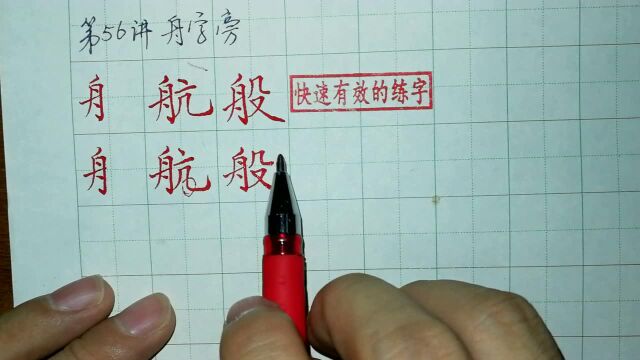 第56讲 舟字旁
舟 航 般 快速有效的练字
舟 航 般